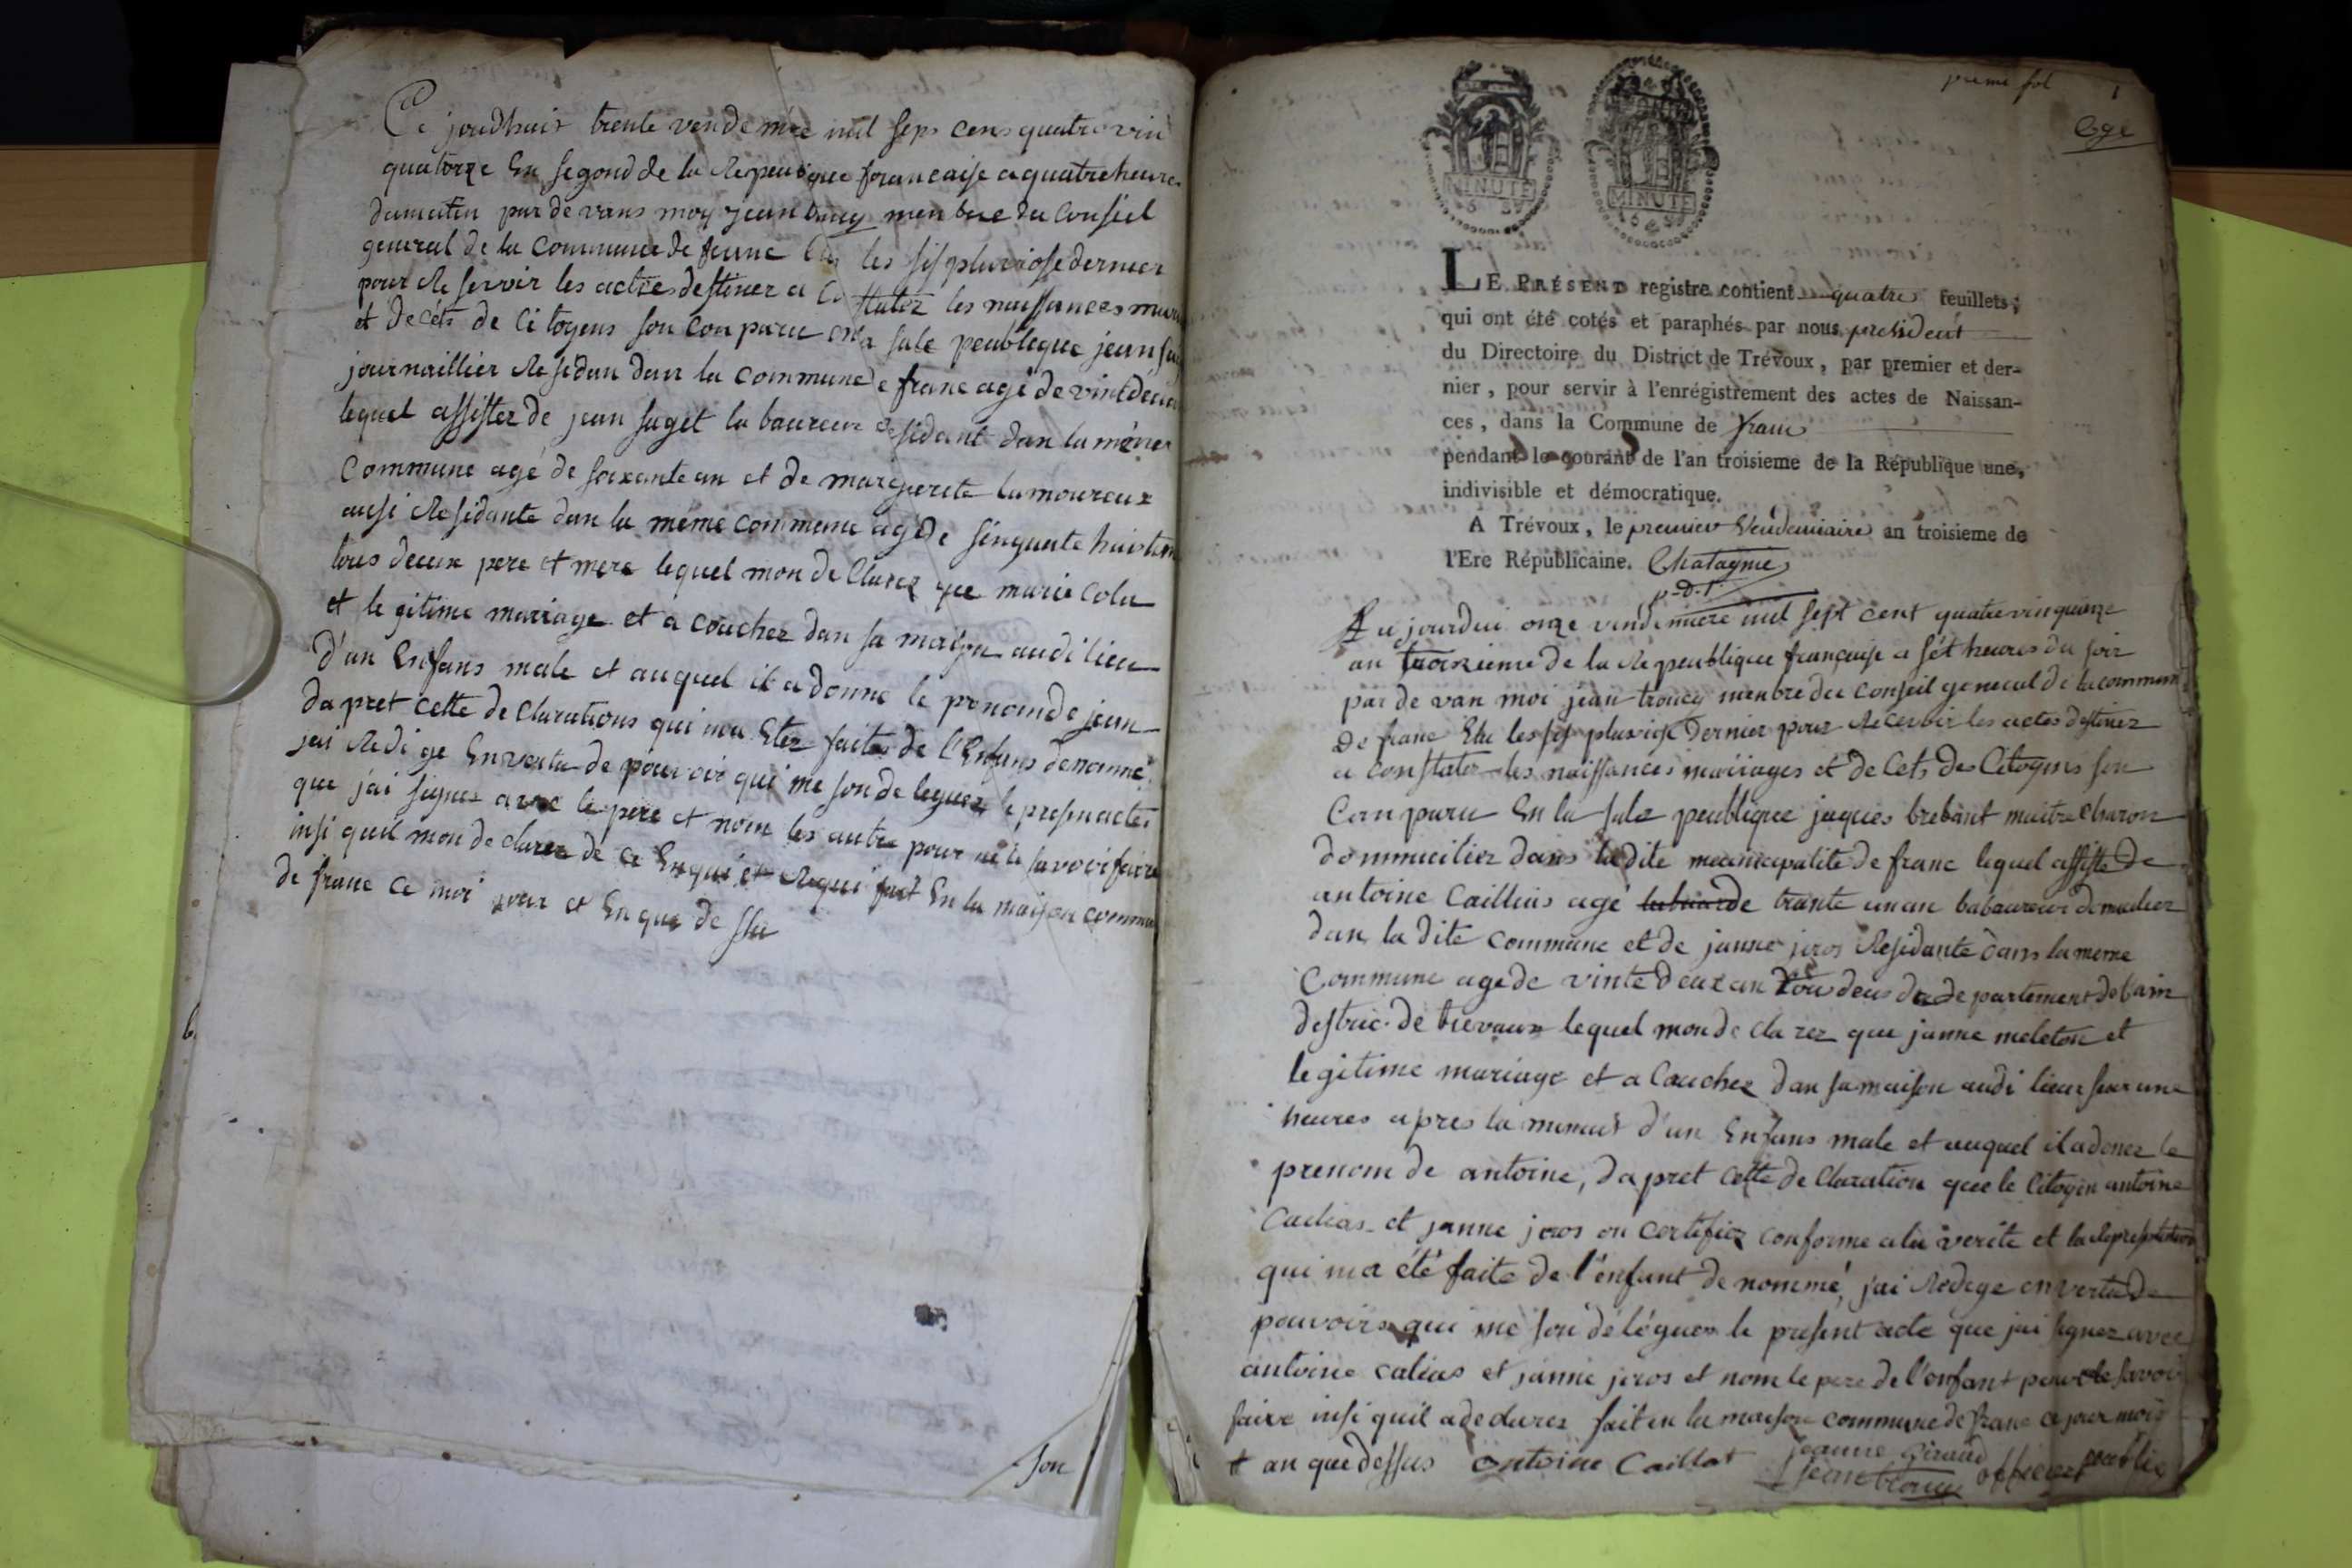 Ce jourdhuit trente vendemére mil sept cens quatre vin
quatorze En segond de la Republique francaise a quatre heures
dumatin par de vans moy jean troncy menbre du Consiel
general de la Commune de franc les sis pluviose dernier
pour Re servoir les actes destinez a Constatez les naissances
et décéts de Citoyens son Conparu la sale peubleque jean
journaillier Residan dans la commune de franc agé de vint deux
lequel assistez de jean suget la baureur Residant dan la même
Commune agé de soixante an et de marguerite Lamoureux
ausi Residante dan la même commune agéde sinquante huit
tous deeux pere et mere lequel mon de Clarez que marie Cola
et le gitime mariage et a couchez dan sa maison audi lieu
d'un Enfans male et auquel il a donne le prenom de jean
da pret Cette de Clarations qui ma Etez faite de l'Enfans denommé
jai Redi ge Envertu de pouvoir qui me son de leguez le presen acte
que j'ai signez avec le pere et nom les autre pour ne le savoir faire
insi quil mon de clarez de ce Enquérir Requi fait En la maison commu
de franc ce moi jour et En que de su
son
preme fol 1
LE PRÉSENT registre contient quatre feuillets;
qui ont été cotés et paraphés par nous president
du Directoire du District de Trévoux, par premier et der-
nier, pour servir à l'enrégistrement des actes de Naissan-
ces, dans la Commune de franc
pendant le courant de l'an troisieme de la République une,
indivisible et démocratique.
A Trévoux, le premier Vendemiaire an troisieme de
l'Ere Républicaine. Chatagnie
p.D.t
MINUTE
MINUTE
Au jourdui onze vendemiere mil sept cent quatre vin quinze
an troisieme de la Republique française a sét heures du soir
par de van moi jean troncy menbre du Conseil general de la commune
de franc Elu les sis pluviose Dernier pour Recevoir les actes destinez
a constater les naissances mariages et de Cets des Citoyens son
Comparu En la sale peublique jaques brebant maitre charon
dommicilier dans ladite municipalite de franc lequel assiste de
antoine Caillias agé trante un an labaureur demeulier
dan la dite commune et de janne jeros Residante dans la meme
Commune agé de vinte deux an tous deus du de partement de lain
destric de trevoux lequel mon de cla rez que janne meleton et
legitime mariage et a Couchez dan sa maison audi lieur seur une
heures apres la minuit d'un Enfans male et auquel il adonez le
prenom de antoine, dapret cette de Claration que le Citoyen antoine
Cailias et janne jeros on certifiez conforme a la verite et la Representation
qui ma été faite de l'enfant de nommé, jai Redege en vertu de
pouvoirs qui me son déléguez le present acte que jai signez avec
antoine calias et janne jeros et nom le pere de l'enfant pour le savoir
faire insi quil adeclarez fait en la maison commune de franc ce jour mois
et an que dessus Antoine Caillat jeanne Giraud
jean troncy officier publie